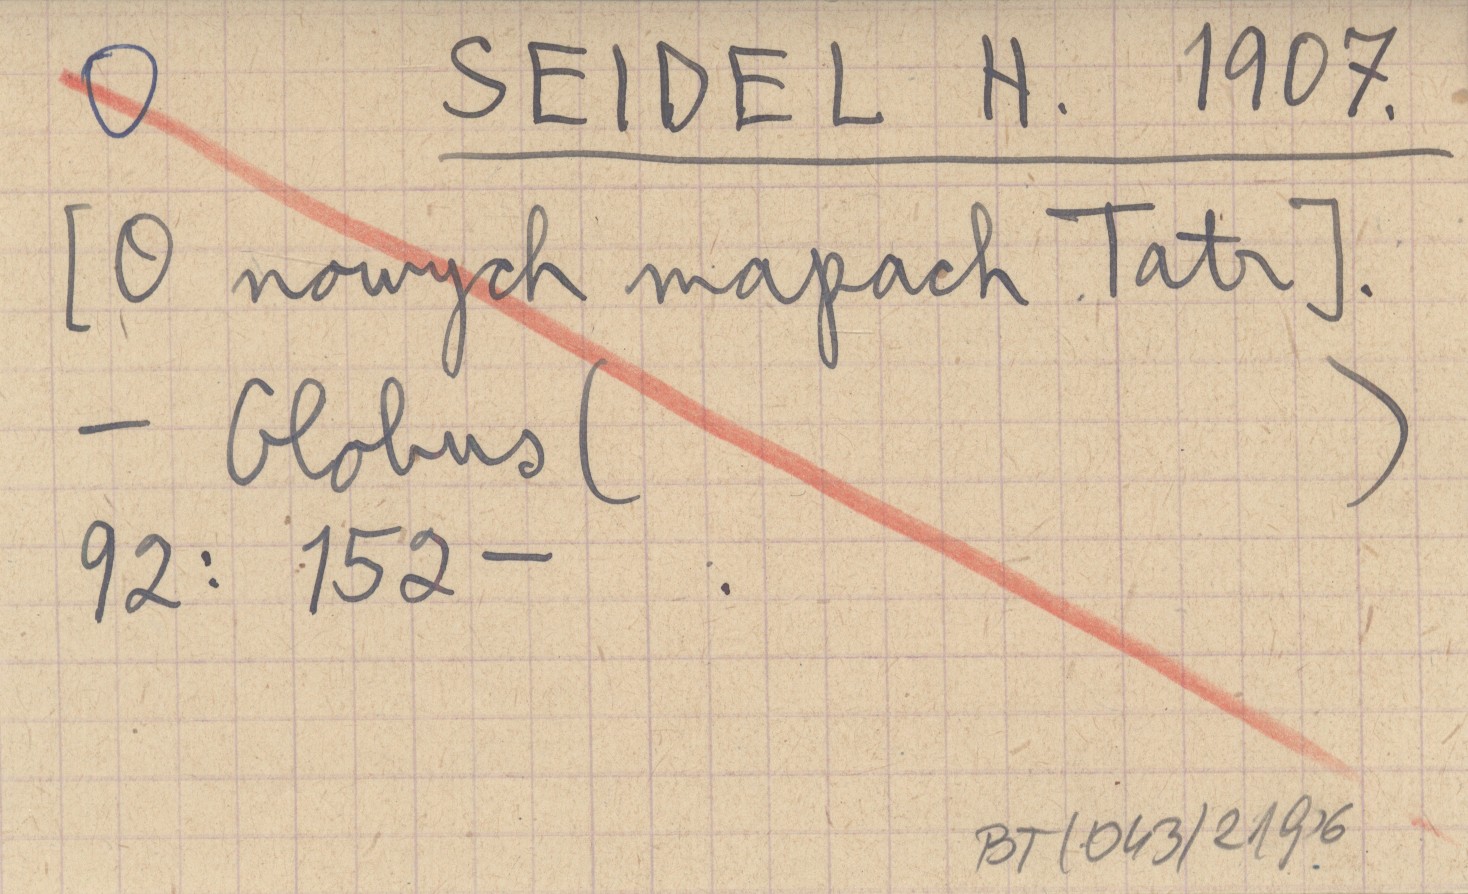 O SEIDEL H. 1907.
[O nowych mapach Tatr].
— Globus ( )
92: 152— .
BT(043)219:6